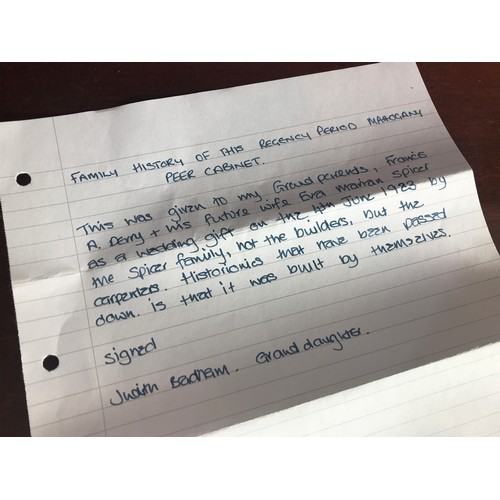 FAMILY HISTORY OF THIS REGENCY PERIOD MAHOGANY
PEER CABINET.
This was given to my Grandparents, Francis
A. Perry + his future wife Eva marian spicer
as a wedding gift on the 4th June 1923 by
the spicer family, not the builders, but the
carpenters. Historionics that have been passed
down. is that it was built by themselves.
signed
Judith Badham. Granddaughter.